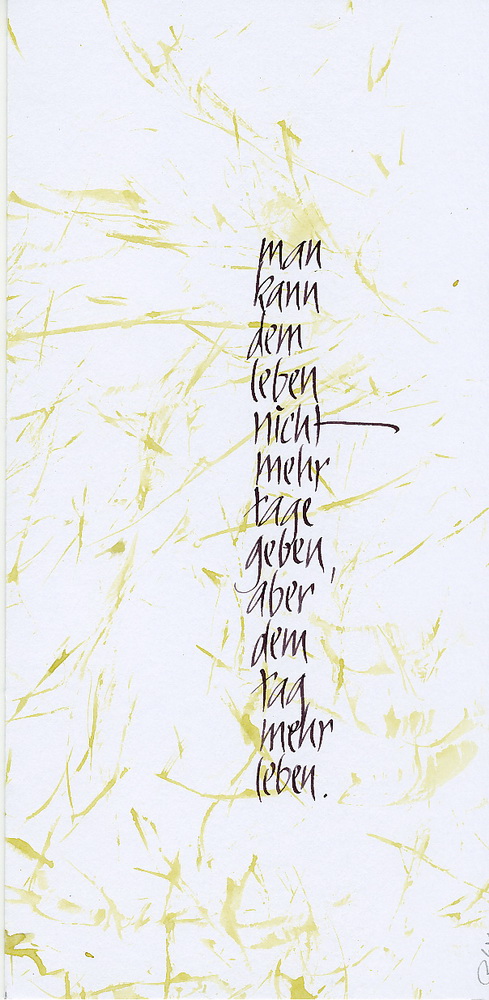 man
kann
dem
leben
nicht
mehr
tage
geben,
aber
dem
tag
mehr
leben.